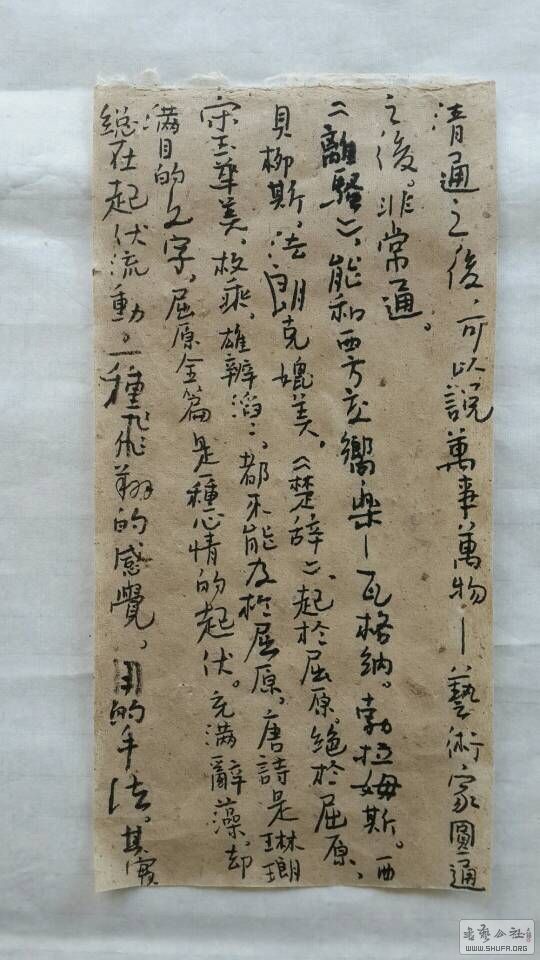 清通之後，可以說萬事萬物—藝術家圓通
之後。非常通。
《離騷》，能和西方交響樂—瓦格納。勃拉姆斯。西
貝柳斯，法朗克媲美。《楚辭》，起於屈原。絕於屈原，
宋玉華美，枚乘，雄辯滔滔，都不能及於屈原。唐詩是琳瑯
滿目的文字，屈原全篇是一種心情的起伏。充滿辭藻，却
總在起伏流動。一種飛翔的感覺，用的手法。其實
书艺公社
WWW.SHUFA.ORG